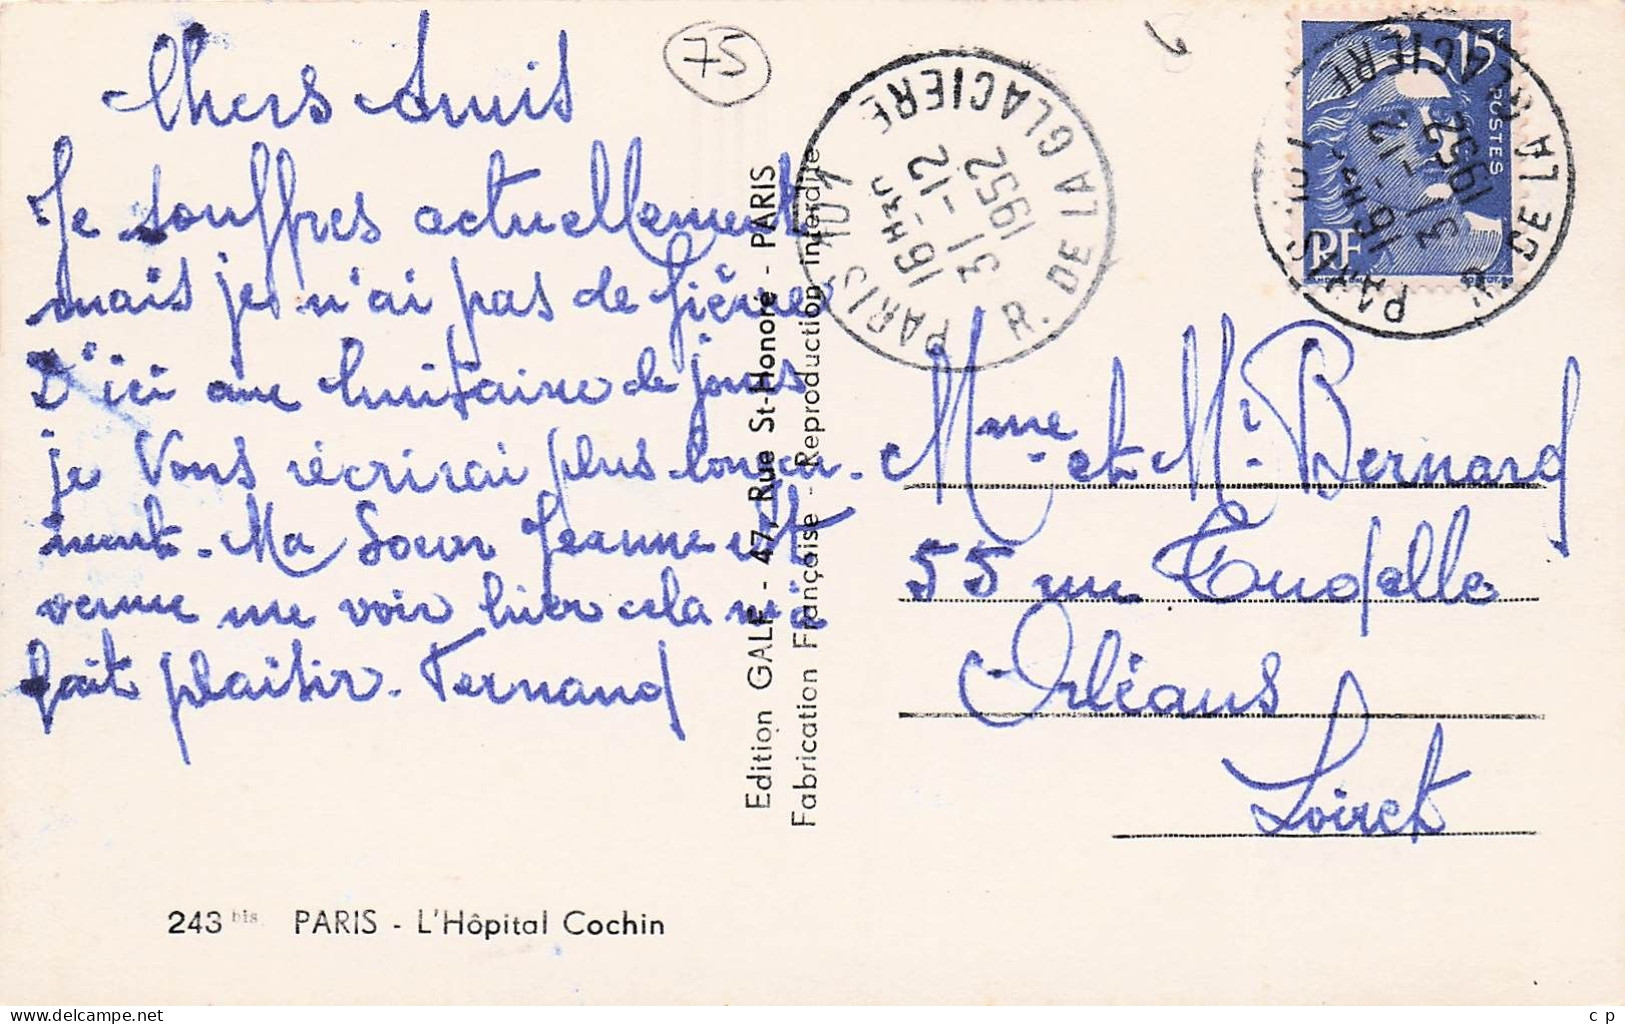 75
Chers Amis
Je souffres actuellement
mais je n'ai pas de fièvre
D'ici une huitaine de jours
je vous récrirai plus longue-
ment. Ma Soeur Jeanne est
venue me voir hier cela m'a
fait plaisir. Fernand
243 bis PARIS - L'Hôpital Cochin
Edition GALF - 47, Rue St-Honoré - PARIS
Fabrication Française - Reproduction interdite
PARIS 107 R. DE LA GLACIERE
16 H 30
31 - 12
1952
15F
POSTES
RF
PARIS 107 R. DE LA GLACIERE
16 H 30
31 - 12
1952
Mme et Mr. Bernard
55 rue Tudelle
Orléans
Loiret
delcampe.net
c p